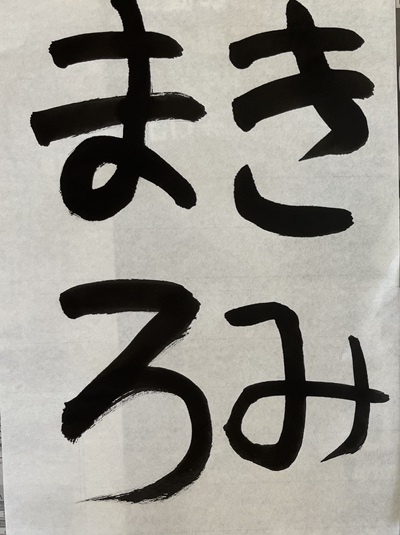 きみ
まろ